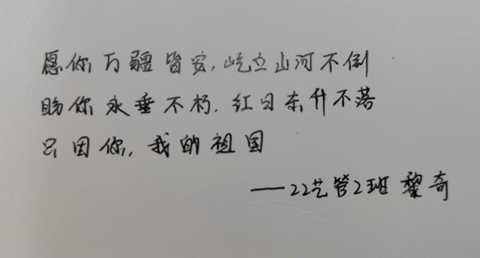 愿你万疆皆安,屹立山河不倒
盼你永垂不朽.红日东升不落
只因你,我的祖国
——22艺管2班 黎奇